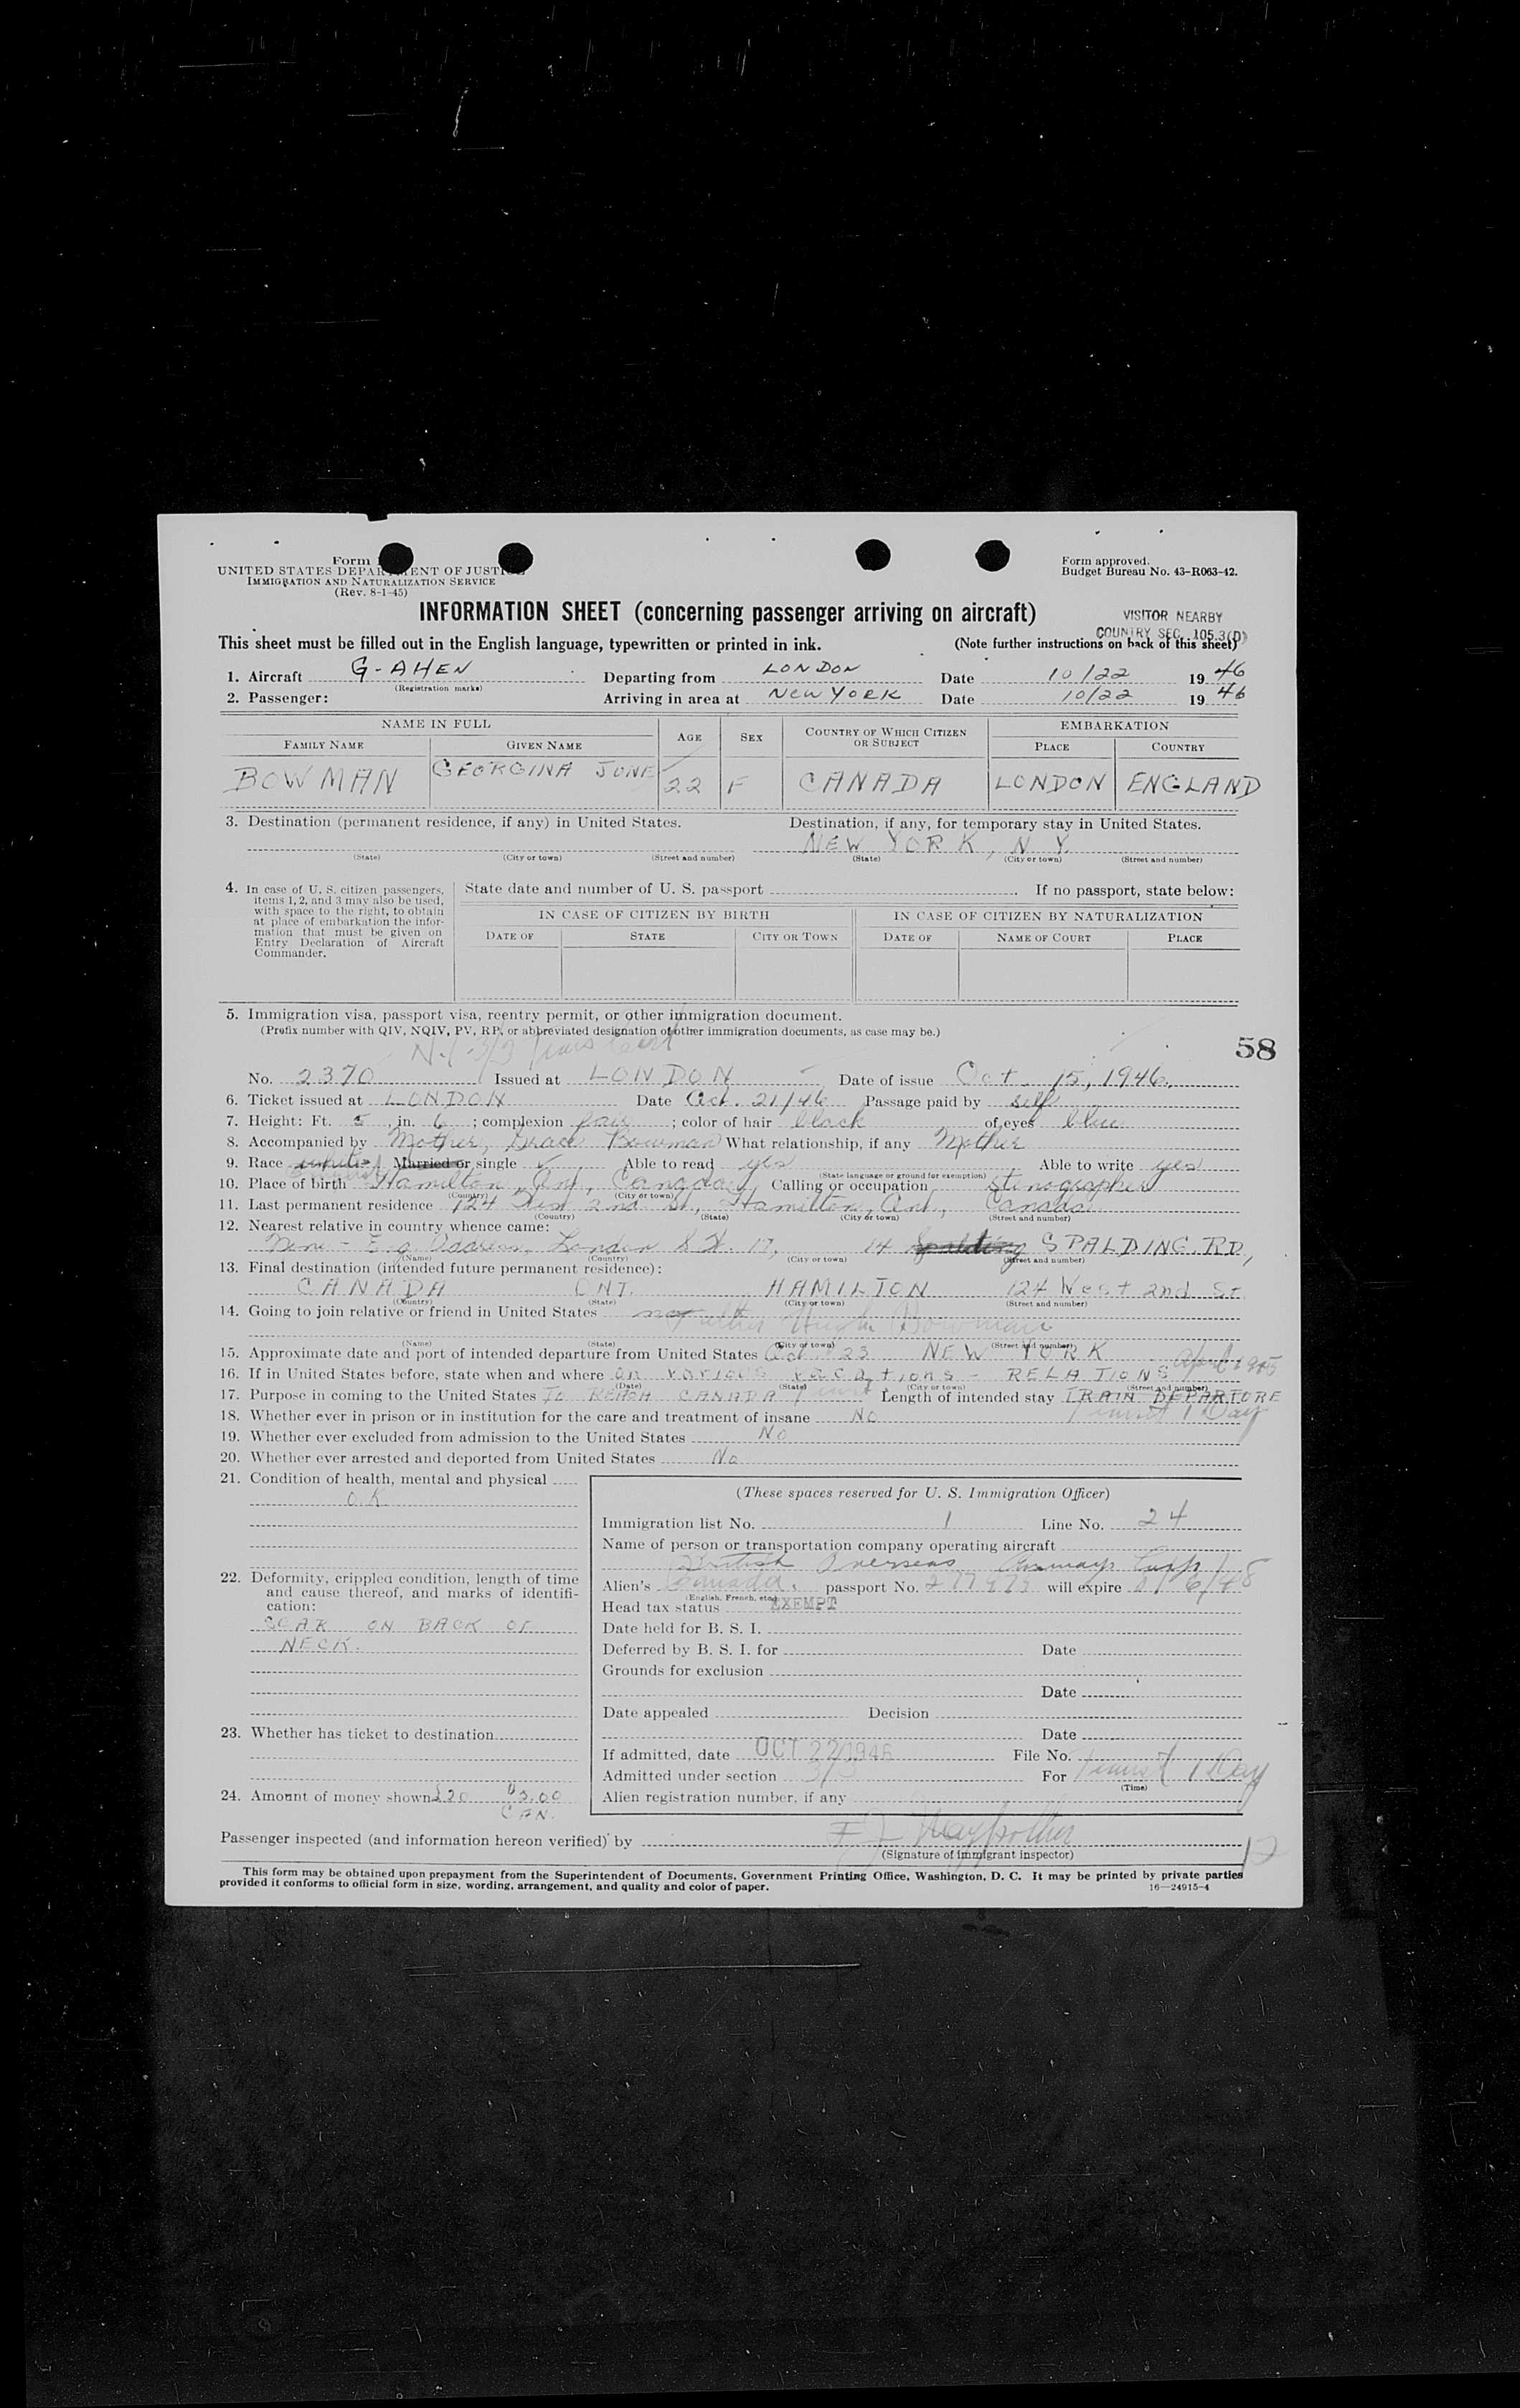 Form
UNITED STATES DEPARTMENT OF JUSTICE
IMMIGRATION AND NATURALIZATION SERVICE
(Rev. 8-1-45)
Form approved.
Budget Bureau No. 43-R063-42.
INFORMATION SHEET (concerning passenger arriving on aircraft)
VISITOR NEARBY
COUNTRY SEC. 105.3(D)
This sheet must be filled out in the English language, typewritten or printed in ink. (Note further instructions on back of this sheet)
1. Aircraft G-AHEN Departing from LONDON Date 10/22 1946
(Registration marks)
2. Passenger: Arriving in area at NEW YORK Date 10/22 1946
NAME IN FULL AGE SEX COUNTRY OF WHICH CITIZEN OR SUBJECT EMBARKATION
FAMILY NAME GIVEN NAME PLACE COUNTRY
BOWMAN GEORGINA JUNE 22 F CANADA LONDON ENGLAND
3. Destination (permanent residence, if any) in United States. Destination, if any, for temporary stay in United States.
NEW YORK, N.Y.
(State) (City or town) (Street and number) (State) (City or town) (Street and number)
4. In case of U. S. citizen passengers, items 1, 2, and 3 may also be used, with space to the right, to obtain at place of embarkation the information that must be given on Entry Declaration of Aircraft Commander.
State date and number of U. S. passport If no passport, state below:
IN CASE OF CITIZEN BY BIRTH IN CASE OF CITIZEN BY NATURALIZATION
DATE OF STATE CITY OR TOWN DATE OF NAME OF COURT PLACE
5. Immigration visa, passport visa, reentry permit, or other immigration document.
(Prefix number with QIV, NQIV, PV, RP, or abbreviated designation of other immigration documents, as case may be.)
58
No. 2370 Issued at LONDON Date of issue Oct. 15, 1946.
6. Ticket issued at LONDON Date Oct. 21/46 Passage paid by self
7. Height: Ft. 5, in. 6; complexion fair; color of hair black of eyes blue
8. Accompanied by Mother, Grace Bowman What relationship, if any Mother
9. Race white Married or single ✓ Able to read yes Able to write yes
(State language or ground for exemption)
10. Place of birth Hamilton, Ont., Canada Calling or occupation Stenographer
(Country) (City or town)
11. Last permanent residence 124 West 2nd St., Hamilton, Ont., Canada
(Country) (State) (City or town) (Street and number)
12. Nearest relative in country whence came:
None - Eng. Address, London S.W. 17, 14 Spalding SPALDING RD,
(Name) (Country) (City or town) (Street and number)
13. Final destination (intended future permanent residence):
CANADA ONT. HAMILTON 124 West 2nd St.
(Country) (State) (City or town) (Street and number)
14. Going to join relative or friend in United States Hugh Bowman
(Name) (State) (City or town) (Street and number)
15. Approximate date and port of intended departure from United States Oct. 23 NEW YORK
16. If in United States before, state when and where on various vacations - RELATIONS
(Date) (State) (City or town) (Street and number)
17. Purpose in coming to the United States TO REACH CANADA Length of intended stay TRAIN DEPARTURE
18. Whether ever in prison or in institution for the care and treatment of insane No 1 Day
19. Whether ever excluded from admission to the United States No
20. Whether ever arrested and deported from United States No
21. Condition of health, mental and physical
O.K.
22. Deformity, crippled condition, length of time and cause thereof, and marks of identification:
SCAR ON BACK OF
NECK.
23. Whether has ticket to destination
24. Amount of money shown £20
CAN.
(These spaces reserved for U. S. Immigration Officer)
Immigration list No. 1 Line No. 24
Name of person or transportation company operating aircraft
British Overseas Airways Corp
Alien's Canada. passport No. will expire
(English, French, etc.)
Head tax status EXEMPT
Date held for B. S. I.
Deferred by B. S. I. for Date
Grounds for exclusion
Date
Date appealed Decision
Date
If admitted, date OCT 22 1946 File No.
Admitted under section 3/3 For Transit 1 Day
(Time)
Alien registration number, if any
Passenger inspected (and information hereon verified) by
(Signature of immigrant inspector)
This form may be obtained upon prepayment from the Superintendent of Documents, Government Printing Office, Washington, D. C. It may be printed by private parties
provided it conforms to official form in size, wording, arrangement, and quality and color of paper. 16—24915-4